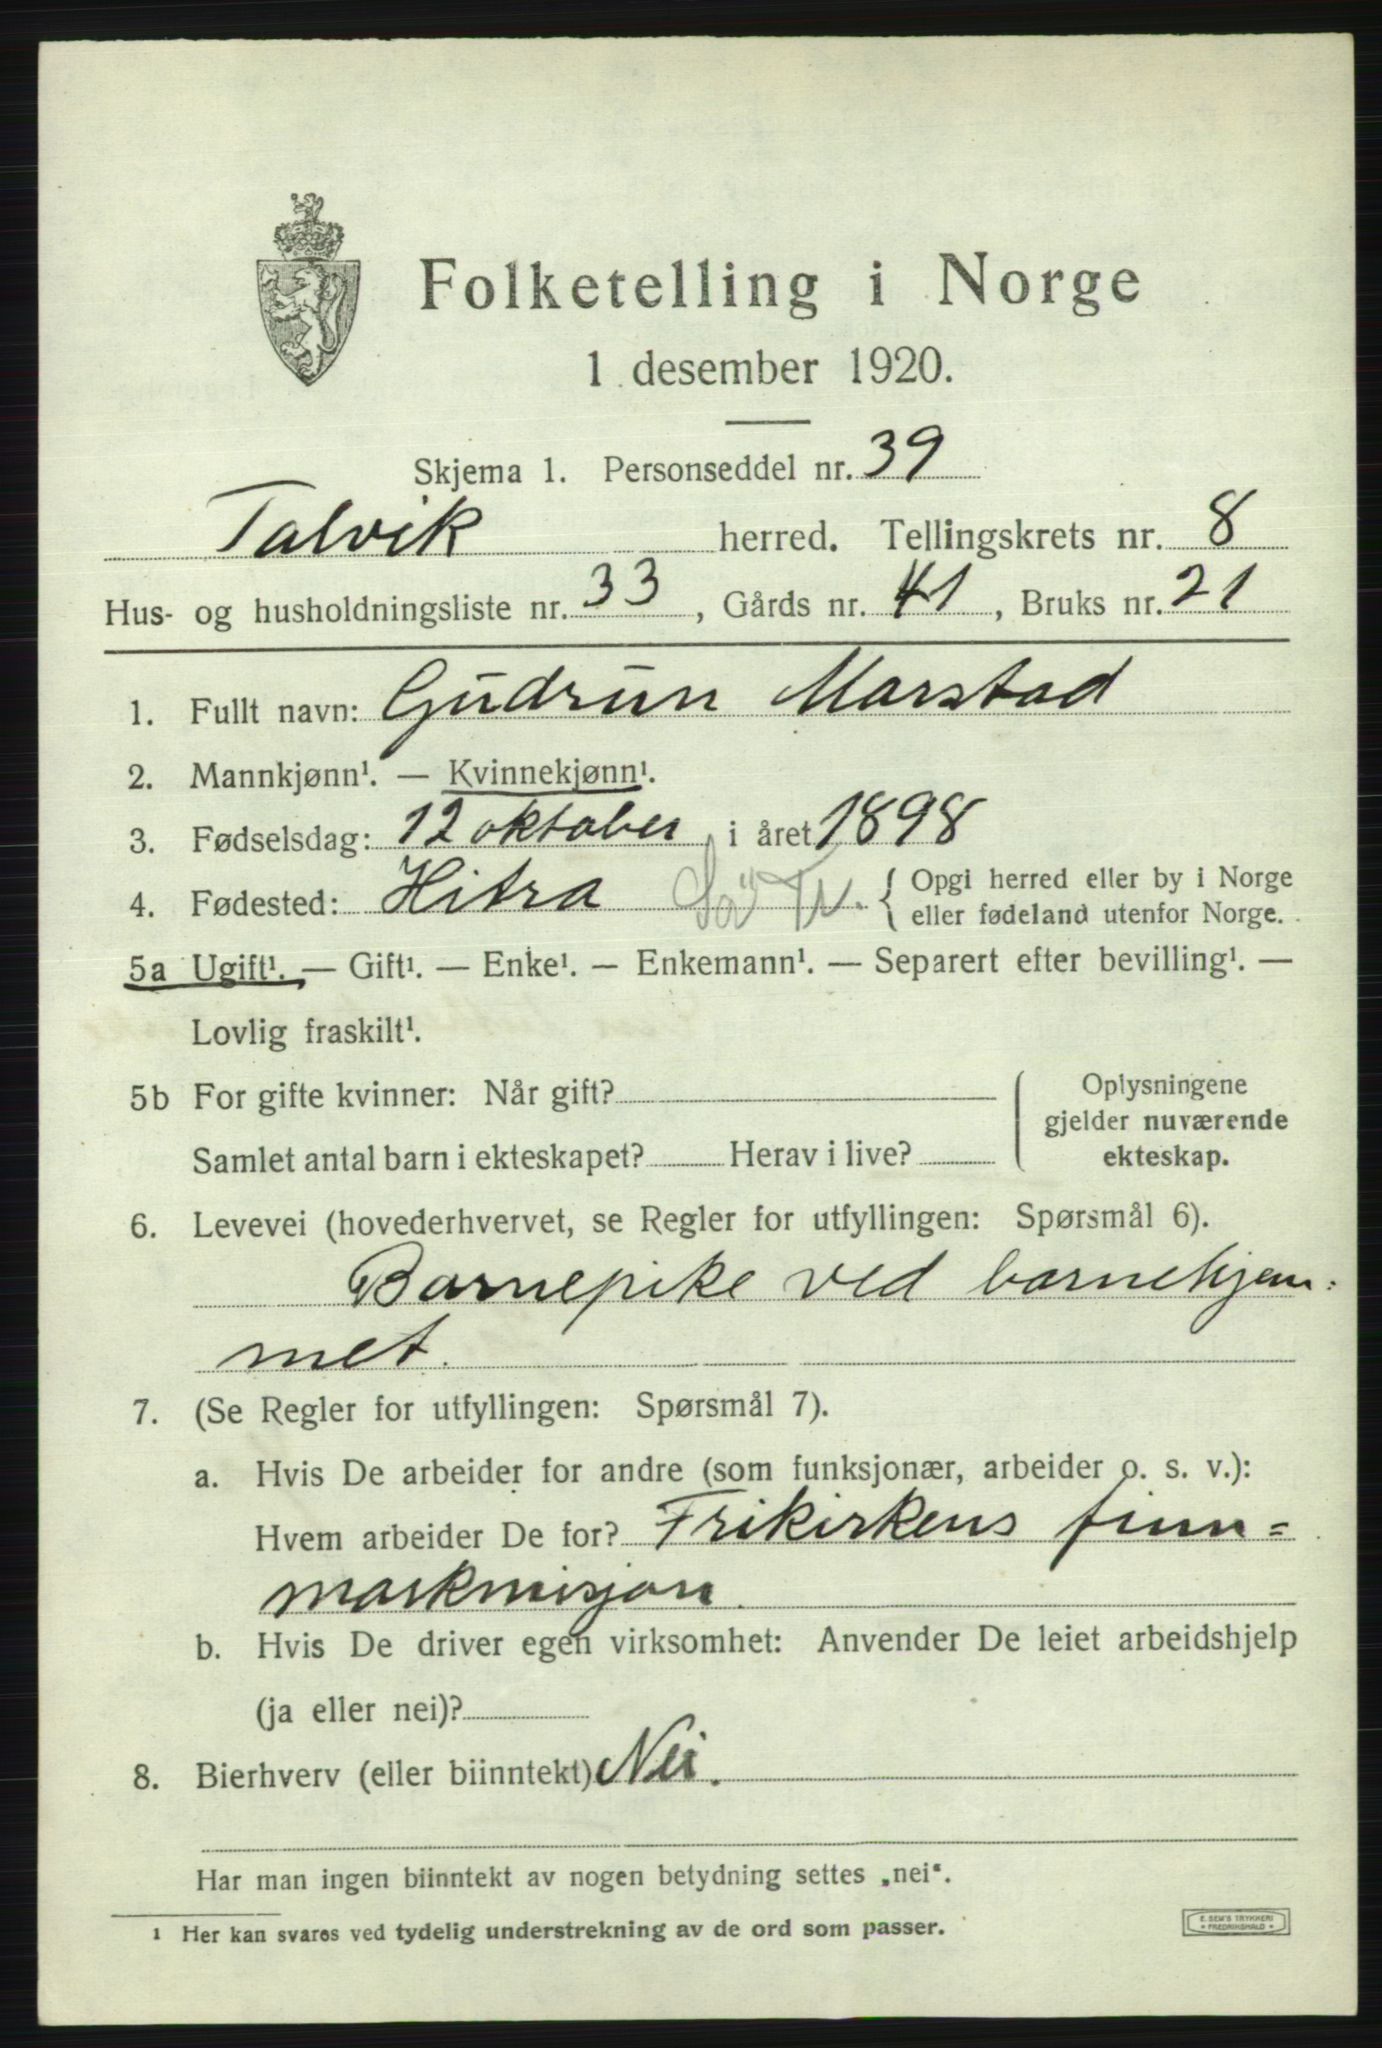 Folketelling i Norge
1 desember 1920.
Skjema 1. Personseddel nr. 39
Talvik herred. Tellingskrets nr. 8
Hus- og husholdningsliste nr. 33, Gårds nr. 41, Bruks nr. 21
1. Fullt navn: Gudrun Marstad
2. Mannkjønn¹. — Kvinnekjønn¹.
3. Fødselsdag: 12 oktober, i året 1898
4. Fødested: Hitra Sö Tr. { Opgi herred eller by i Norge
eller fødeland utenfor Norge.
5a Ugift¹. — Gift¹. — Enke¹. — Enkemann¹. — Separert efter bevilling¹. —
Lovlig fraskilt¹.
5b For gifte kvinner: Når gift?
Samlet antal barn i ekteskapet? Herav i live?
Oplysningene
gjelder nuværende
ekteskap.
6. Levevei (hovederhvervet, se Regler for utfyllingen: Spørsmål 6).
Barnepike ved barnehjem:
met.
7. (Se Regler for utfyllingen: Spørsmål 7).
a. Hvis De arbeider for andre (som funksjonær, arbeider o. s. v.):
Hvem arbeider De for? Frikirkens finn=
markmisjon.
b. Hvis De driver egen virksomhet: Anvender De leiet arbeidshjelp
(ja eller nei)?
8. Bierhverv (eller biinntekt) Nei.
Har man ingen biinntekt av nogen betydning settes „nei“.
¹ Her kan svares ved tydelig understrekning av de ord som passer.
E. SEM'S TRYKKERI
FREDRIKSHALD